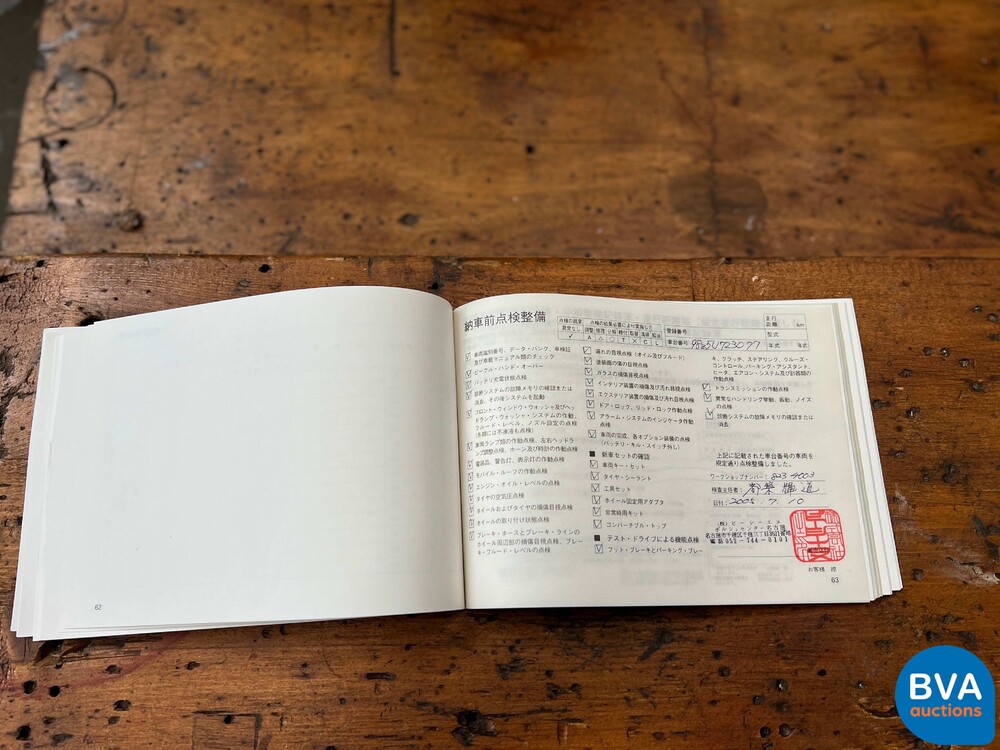 納車前点検整備
点検の結果 点検の結果必要により実施した
異常なし 調整 修理 分解 締付 取替 清掃 給油
✓ A △ ○ T X C L
登録番号
車台番号 98Z5U723077
走行距離 km
型式
年式 年式
車両識別番号、データ・バンク、車検証
及び車載マニュアル類のチェック
ビークル・ハンド・オーバー
バッテリ充電状態点検
診断システムの故障メモリの確認または
消去、その後システムを起動
フロント・ウィンドウ・ウォッシャ及びヘッ
ドランプ・ウォッシャ・システムの作動、
フルード・レベル、ノズル設定の点検
(冬期には不凍液も点検)
車両ランプ類の作動点検、左右ヘッドラ
ンプ調整点検、ホーン及び時計の作動点検
電装品、警告灯、表示灯の作動点検
モバイル・ルーフの作動点検
エンジン・オイル・レベルの点検
タイヤの空気圧点検
ホイールおよびタイヤの損傷目視点検
ホイールの取り付け状態点検
ブレーキ・ホースとブレーキ・ラインの
ホイール周辺部の損傷目視点検、ブレー
キ・フルード・レベルの点検
漏れの目視点検（オイル及びフルード）
塗装面の傷の目視点検
ガラスの損傷目視点検
インテリア装置の損傷及び汚れ目視点検
エクステリア装置の損傷及び汚れ目視点検
ドア・ロック、リッド・ロック作動点検
アラーム・システムのインジケータ作動
点検
車両の完成、各オプション装備の点検
（バッテリ・キル・スイッチ外し）
■ 新車セットの確認
車両キー・セット
タイヤ・シーラント
工具セット
ホイール固定用アダプタ
非常時用キット
コンバーチブル・トップ
■ テスト・ドライブによる機能点検
フット・ブレーキとパーキング・ブレー
キ、クラッチ、ステアリング、クルーズ・
コントロール、パーキング・アシスタント、
ヒータ、エアコン・システム及び計器類の
作動点検
トランスミッションの作動点検
異常なハンドリング挙動、振動、ノイズ
の点検
診断システムの故障メモリの確認または
消去
上記に記載された車台番号の車両を
規定通り点検整備しました。
ワークショップナンバー: 803-4003
検査主任者:
日付: 2005. 7. 10
ポルシェセンター名古屋
お客様 控
62
63
BVA
auctions